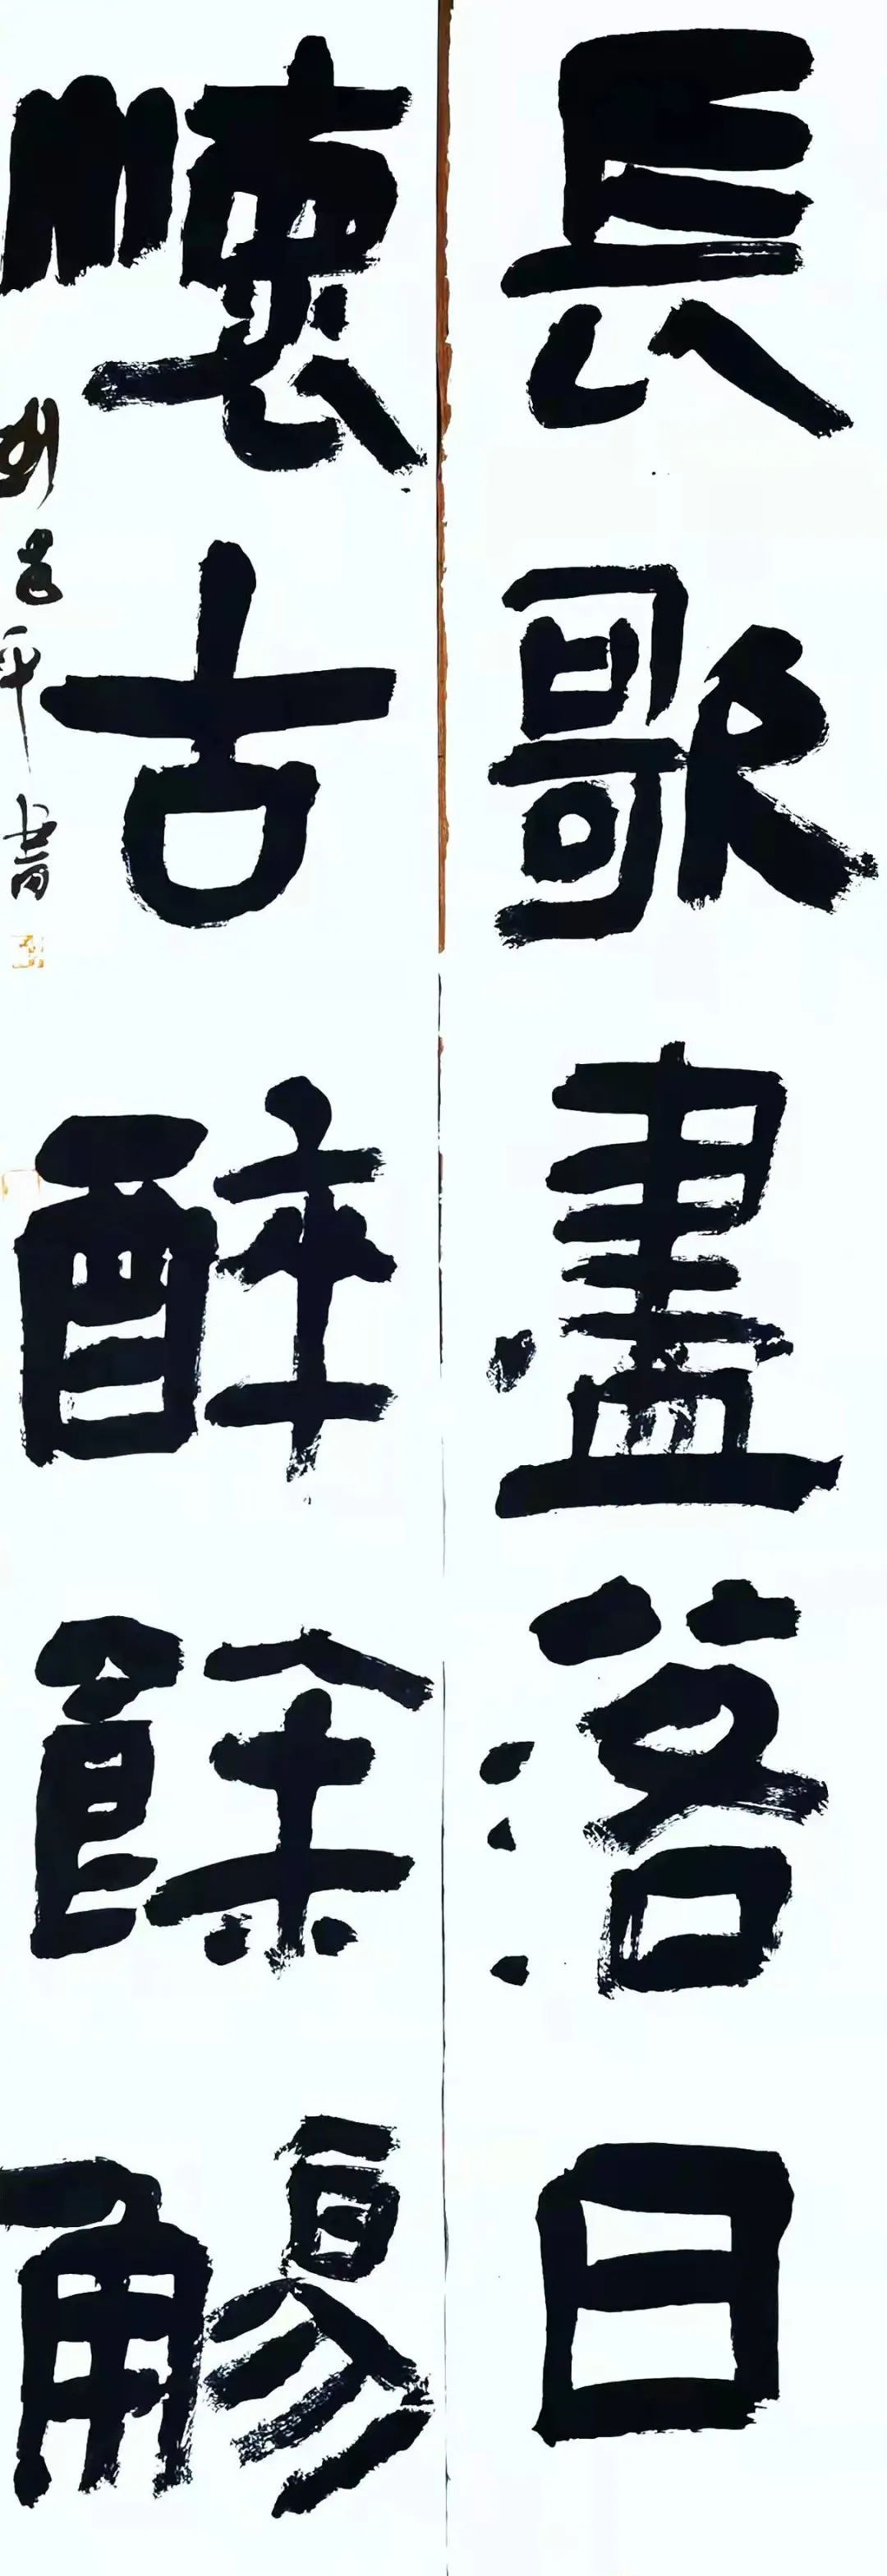 長歌盡落日
懷古醉餘觴
平書